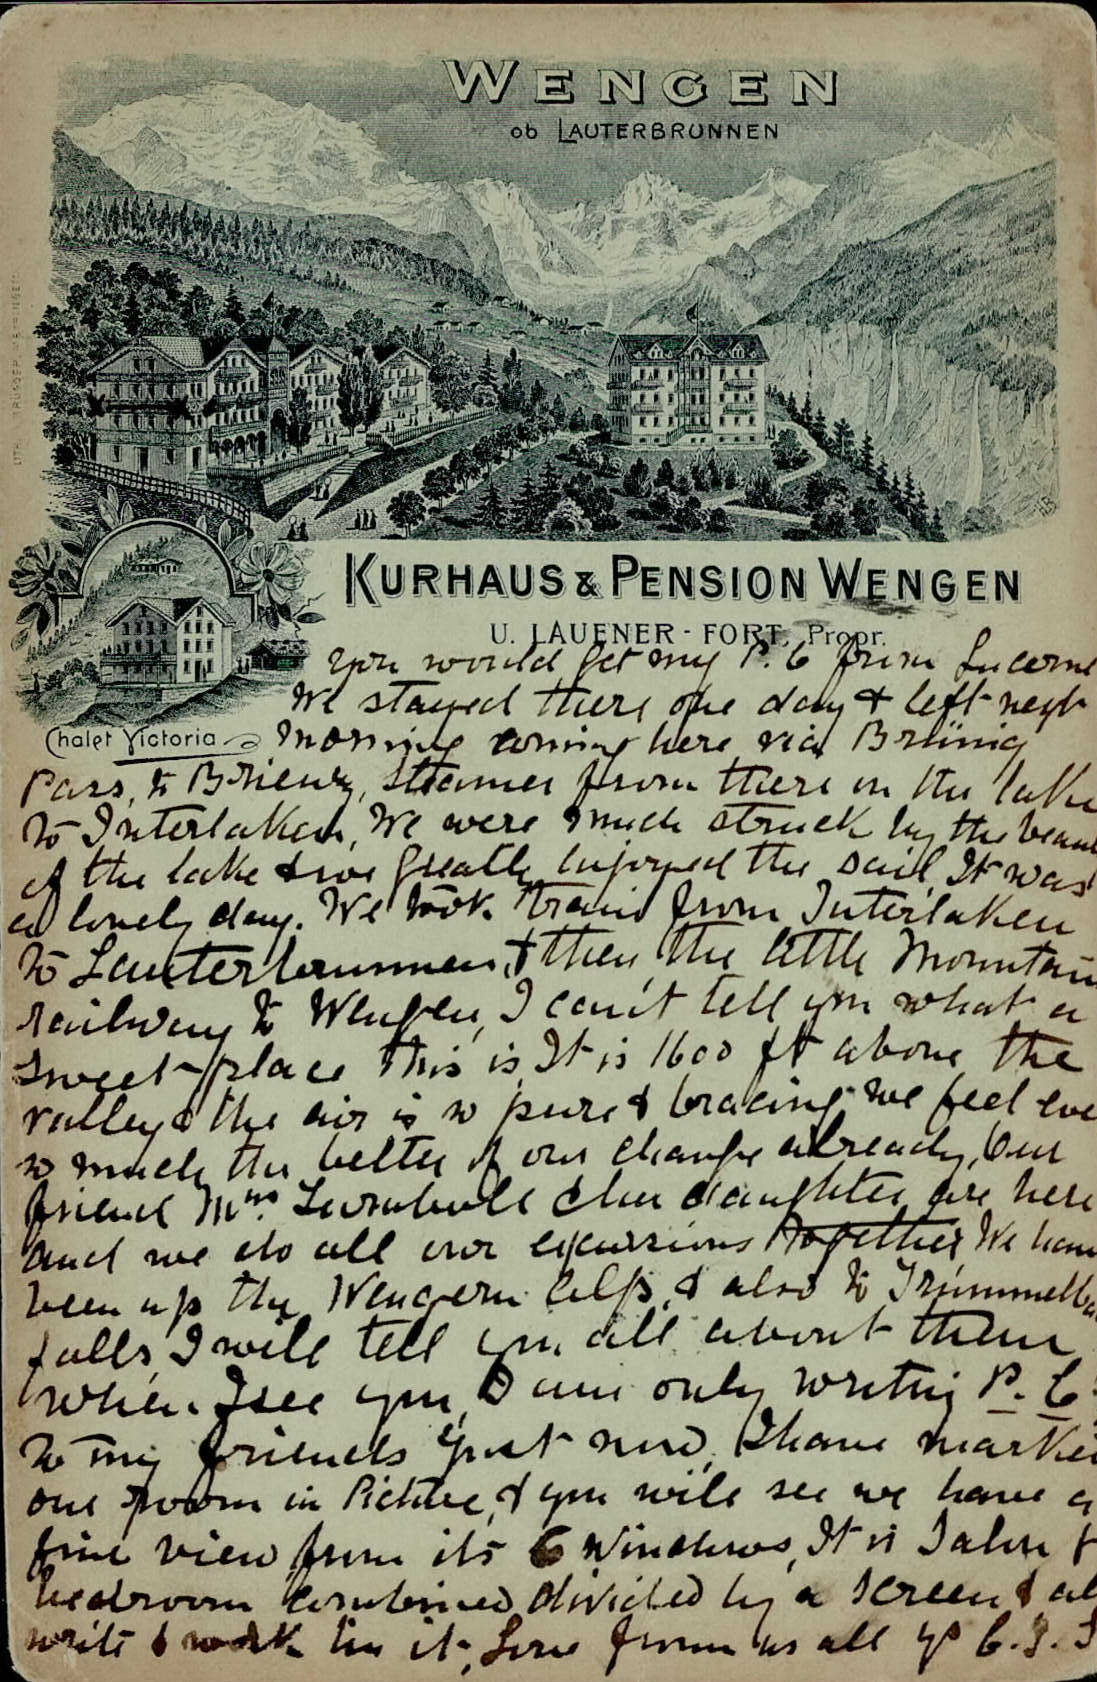 WENGEN
ob LAUTERBRUNNEN
KURHAUS & PENSION WENGEN
U. LAUENER - FORT, Propr.
Chalet Victoria
You would get my P. C from Lucerne
We stayed there one day & left next
morning coming here via Brünig
Pass, to Brienz, steamer from there on the lake
to Interlaken, We were much struck by the beau
of the lake & we greatly enjoyed the sail, It was
a lovely day. We took train from Interlaken
to Lauterbrunnen, & then the little Mountain
railway to Wengen, I can't tell you what a
sweet place this is It is 1600 ft above the
valley & the air is so pure & bracing we feel eve
so much the better of our change already, Our
friend Mrs. Turnbull & her daughter are here
and we do all our excursions together We have
been up the Wengern Alp, & also to Trümmelba
falls, I will tell you all about them
when I see you, I am only writing P. C.
to my friends just now, I have marked
our room in Picture, & you will see we have a
fine view from its 6 Windows, It is Salon &
bedroom combined divided by a screen & al
write & work in it, Love from us all